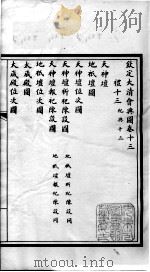 欽定大清會典圖卷十三
禮十三 祀典十三
天神壇
地祇壇圖
天神壇位次圖
天神壇祈祀陳設圖 地祇壇祈祀陳設圖
地祇壇位次圖
天神壇報祀陳設圖 地祇壇報祀陳設圖
太歲殿圖
太歲殿位次圖